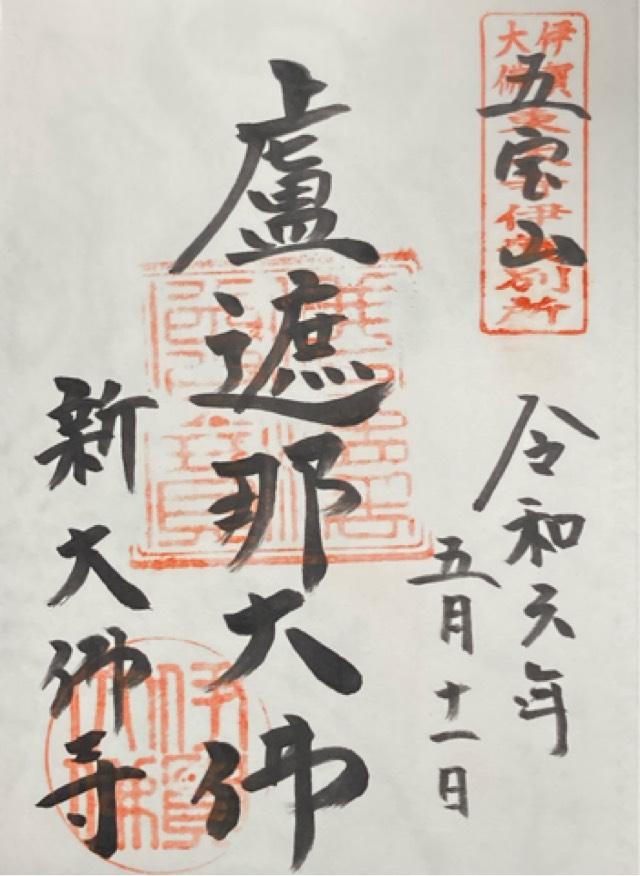 伊賀
大佛
東大寺伊賀別所
五宝山
令和六年
五月十一日
盧遮那大佛
新大佛寺
伊賀
大佛